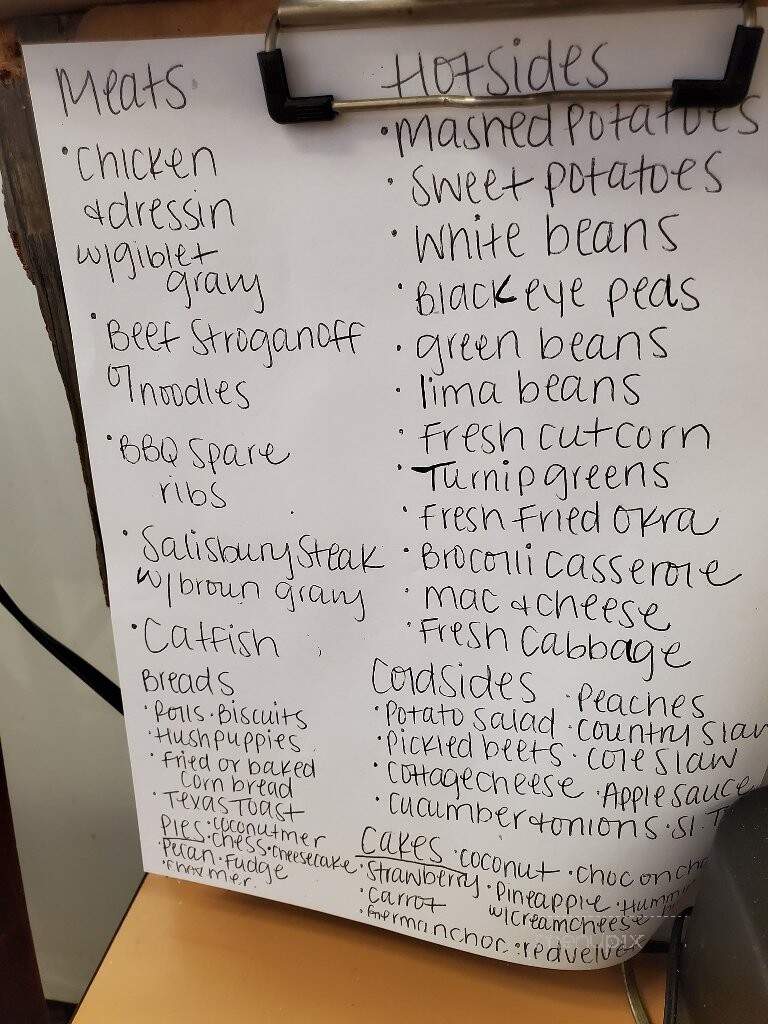 Meats
• Chicken
& dressin
w/giblet
gravy
• Beef Stroganoff
o/noodles
• BBQ Spare
ribs
• Salisbury Steak
w/brown gravy
• Catfish
Breads
• Rolls • Biscuits
• Hushpuppies
• Fried or baked
corn bread
• Texas Toast
Pies • coconut mer
• chess • cheesecake
• Pecan • Fudge
Hot sides
• Mashed Potatoes
• Sweet potatoes
• White beans
• Black eye peas
• green beans
• lima beans
• Fresh cut corn
• Turnip greens
• Fresh Fried Okra
• Brocolli casserole
• Mac & cheese
• Fresh Cabbage
Cold sides • Peaches
• Potato Salad • Country Slaw
• Pickled beets • Cole Slaw
• Cottage cheese • Apple sauce
• Cucumber & onions • Sl. T
Cakes • coconut • choc on ch
• Strawberry • Pineapple • Humm
• Carrot w/creamcheese
• German choc • red velve